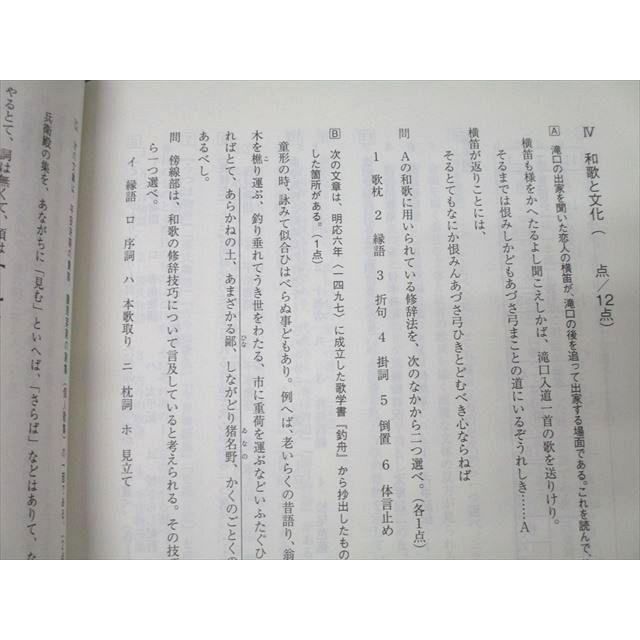 Ⅳ 和歌と文化 ( 点/12点)
A 滝口の出家を聞いた恋人の横笛が、滝口の後を追って出家する場面である。これを読んで、
横笛も様をかへたるよし聞こえしかば、滝口入道一首の歌を送りけり。
そるまでは恨みしかどもあづさ弓まことの道にいるぞうれしき……A
横笛が返りことには、
そるとてもなにか恨みんあづさ弓ひきとどむべき心ならねば
問 Aの和歌に用いられている修辞法を、次のなかから二つ選べ。(各1点)
1 歌枕 2 縁語 3 折句 4 掛詞 5 倒置 6 体言止め
B 次の文章は、明応六年(一四九七)に成立した歌学書『釣舟』から抄出したもの
した箇所がある。(1点)
童形の時、詠みて似合ひはべらぬ事どもあり。例へば、老いらくの昔語り、翁
木を樵り運ぶ、釣り垂れてうき世をわたる、市に重荷を運ぶなどいふたぐひ
ればとて、あらかねの土、あまざかる鄙、しながどり猪名野、かくのごとくの
あるべし。
問 傍線部は、和歌の修辞技巧について言及していると考えられる。その技
ら一つ選べ。
イ 縁語 ロ 序詞 ハ 本歌取り ニ 枕詞 ホ 見立て
兵衛殿の集を、あながちに「見む」といへば、「さらば」などはありて、な
やるとて、詞は無くて、